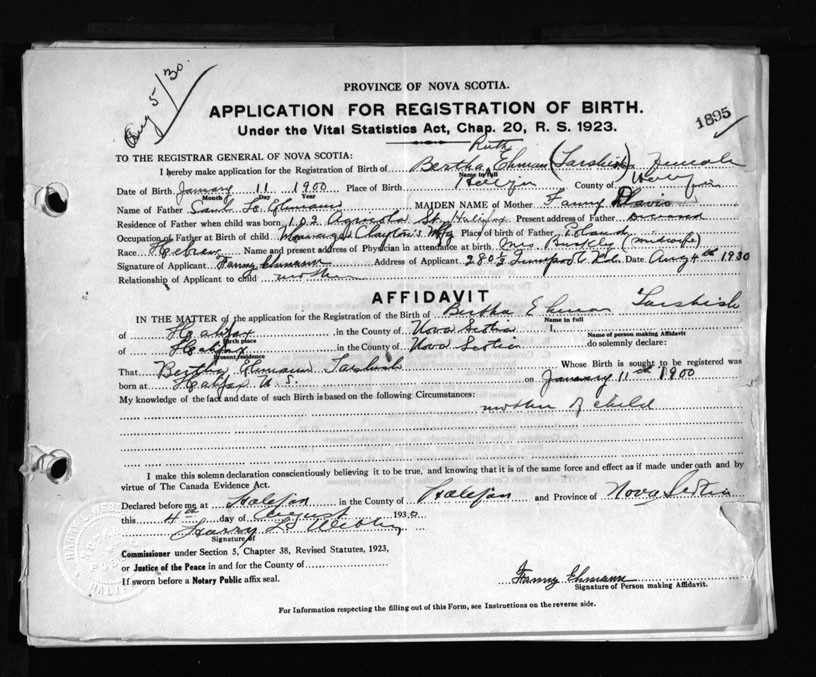 Aug 5/30.
PROVINCE OF NOVA SCOTIA.
APPLICATION FOR REGISTRATION OF BIRTH.
Under the Vital Statistics Act, Chap. 20, R. S. 1923.
1895
TO THE REGISTRAR GENERAL OF NOVA SCOTIA:
Ruth
I hereby make application for the Registration of Birth of Bertha Ehman (Tarshish) Female
Name in full
Date of Birth January 11 1900 Place of Birth Halifax County of Halifax
Month Day Year
Name of Father Ehmann MAIDEN NAME of Mother Fanny Davis
Residence of Father when child was born 102 Agricola St. Halifax Present address of Father Deceased
Occupation of Father at Birth of child Clayton's Mfg Place of birth of Father Poland
Race Hebrew Name and present address of Physician in attendance at birth Mrs (midwife)
Signature of Applicant Fanny Ehmann Address of Applicant 280 1/2 Date Aug 4th 1930
Relationship of Applicant to child mother
AFFIDAVIT
IN THE MATTER of the application for the Registration of the Birth of Bertha Ehman Tarshish
Name in full
of Halifax in the County of Nova Scotia I,
Birth place Name of person making Affidavit
of Halifax in the County of Nova Scotia do solemnly declare:
Present residence
That Bertha Ehmann Tarshish Whose Birth is sought to be registered was
born at Halifax N. S. on January 11th 1900
My knowledge of the fact and date of such Birth is based on the following Circumstances:
mother of child
I make this solemn declaration conscientiously believing it to be true, and knowing that it is of the same force and effect as if made under oath and by
virtue of The Canada Evidence Act.
Declared before me at Halifax in the County of Halifax and Province of Nova Scotia
this 4th day of August 1930
Harry
Signature of
Commissioner under Section 5, Chapter 38, Revised Statutes, 1923,
or Justice of the Peace in and for the County of
If sworn before a Notary Public affix seal.
Fanny Ehmann
Signature of Person making Affidavit.
For Information respecting the filling out of this Form, see Instructions on the reverse side.